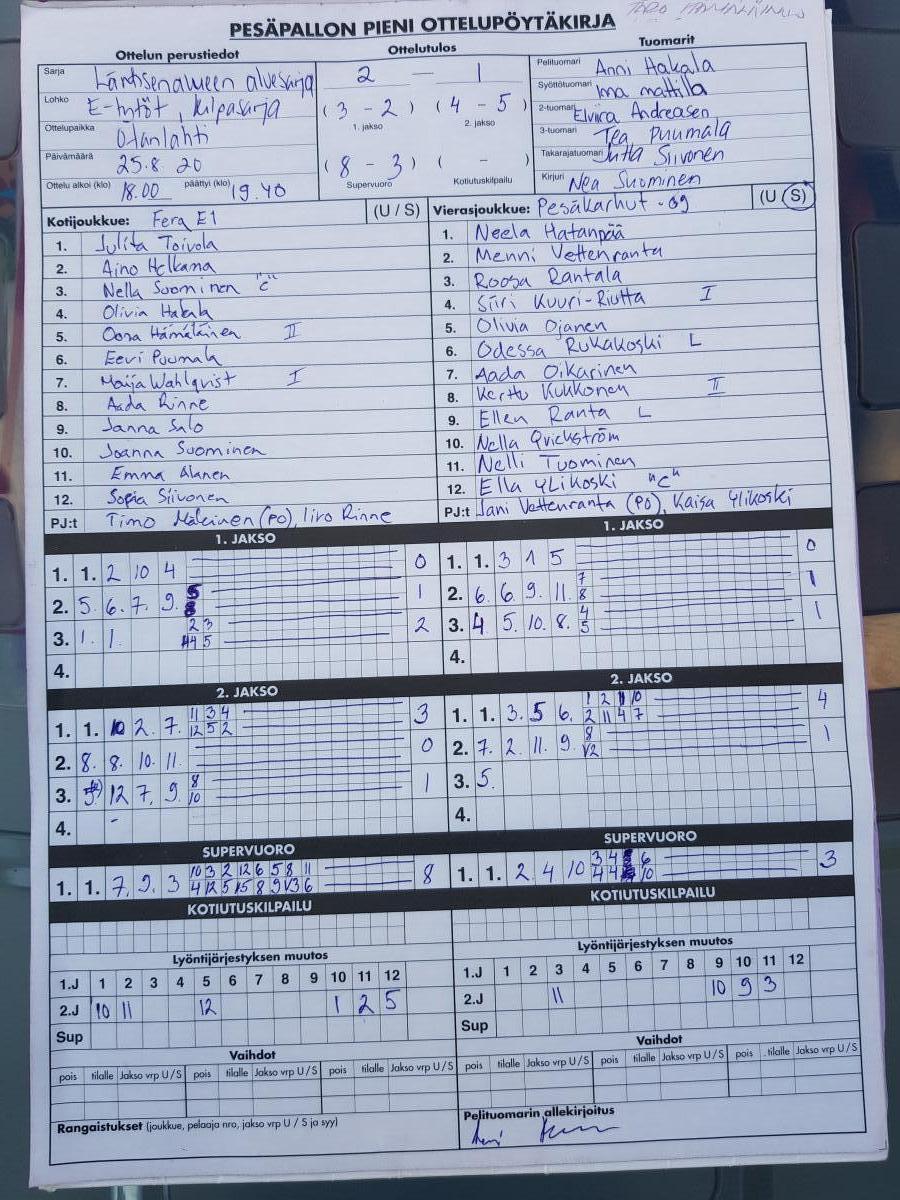 PESÄPALLON PIENI OTTELUPÖYTÄKIRJA
Ottelun perustiedot
Sarja Läntisenalueen aluesarja
Lohko E-tytöt, Kilpasarja
Ottelupaikka Otanlahti
Päivämäärä 25.8.20
Ottelu alkoi (klo) 18.00 päättyi (klo) 19.40
Ottelutulos
2 — 1
(3 - 2) (4 - 5)
1. jakso 2. jakso
(8 - 3) ( - )
Supervuoro Kotiutuskilpailu
Tuomarit
Pelituomari Anni Hakala
Syöttötuomari Inna mattila
2-tuomari Elviira Andreasen
3-tuomari Tea Puumala
Takarajatuomari Jutta Siivonen
Kirjuri Nea Suominen
Kotijoukkue: Fera E1 (U / S)
1. Julita Toivola
2. Aino Helkama
3. Nella Suominen "c"
4. Olivia Hakala
5. Oona Hämäläinen II
6. Eevi Puumala
7. Maija Wahlqvist I
8. Aada Rinne
9. Janna Salo
10. Joanna Suominen
11. Emma Alanen
12. Sofia Siivonen
PJ:t Timo (PO), Iiro Rinne
Vierasjoukkue: Pesäkarhut -09 (U / S)
1. Neela Hatanpää
2. Menni Vettenranta
3. Roosa Rantala
4. Siiri Kuuri-Riutta I
5. Olivia Ojanen
6. Odessa Rukakoski L
7. Aada Oikarinen
8. Kerttu Kukkonen II
9. Ellen Ranta L
10. Nella Qvickström
11. Nelli Tuominen
12. Ella Ylikoski "c"
PJ:t Jani Vettenranta (PO), Kaisa Ylikoski
1. JAKSO
1. 1. 2 10 4 0
2. 5. 6. 7. 9. 1
2 3
3. 1. 1. 4 5 2
4.
2. JAKSO
11 3 4
1. 1. 10 2. 7. 12 5 2 3
2. 8. 8. 10. 11. 0
8
3. 12 7. 9. 10 1
4. -
SUPERVUORO
10 3 2 12 6 5 8 11
1. 1. 7. 9. 3 8
KOTIUTUSKILPAILU
Lyöntijärjestyksen muutos
1.J 1 2 3 4 5 6 7 8 9 10 11 12
2.J 10 11 12 1 2 5
Sup
Vaihdot
pois tilalle Jakso vrp U / S pois tilalle Jakso vrp U / S pois tilalle Jakso vrp U / S
Rangaistukset (joukkue, pelaaja nro, jakso vrp U / S ja syy)
1. JAKSO
1. 1. 3 1 5 0
7
2. 6. 6. 9. 11. 8 1
4
3. 4 5. 10. 8. 5 1
4.
2. JAKSO
1 2 11 10
1. 1. 3. 5 6. 2 11 4 7 4
8
2. 7. 2. 11. 9. 12 1
3. 5.
4.
SUPERVUORO
3 4 6
1. 1. 2. 4 10 4 4 10 3
KOTIUTUSKILPAILU
Lyöntijärjestyksen muutos
1.J 1 2 3 4 5 6 7 8 9 10 11 12
2.J 11 10 9 3
Sup
Vaihdot
pois tilalle Jakso vrp U / S pois tilalle Jakso vrp U / S pois tilalle Jakso vrp U / S
Pelituomarin allekirjoitus